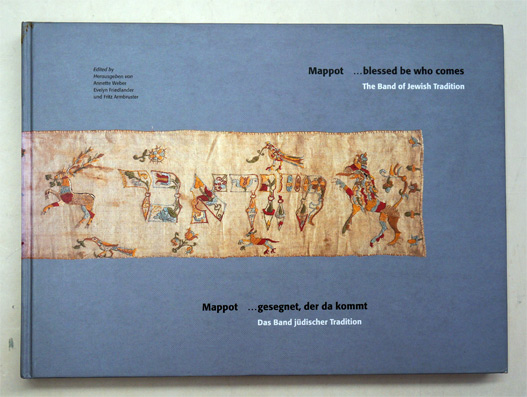 Edited by
Herausgegeben von
Annette Weber,
Evelyn Friedlander
und Fritz Armbruster
Mappot ...blessed be who comes
The Band of Jewish Tradition
Mappot ...gesegnet, der da kommt
Das Band jüdischer Tradition